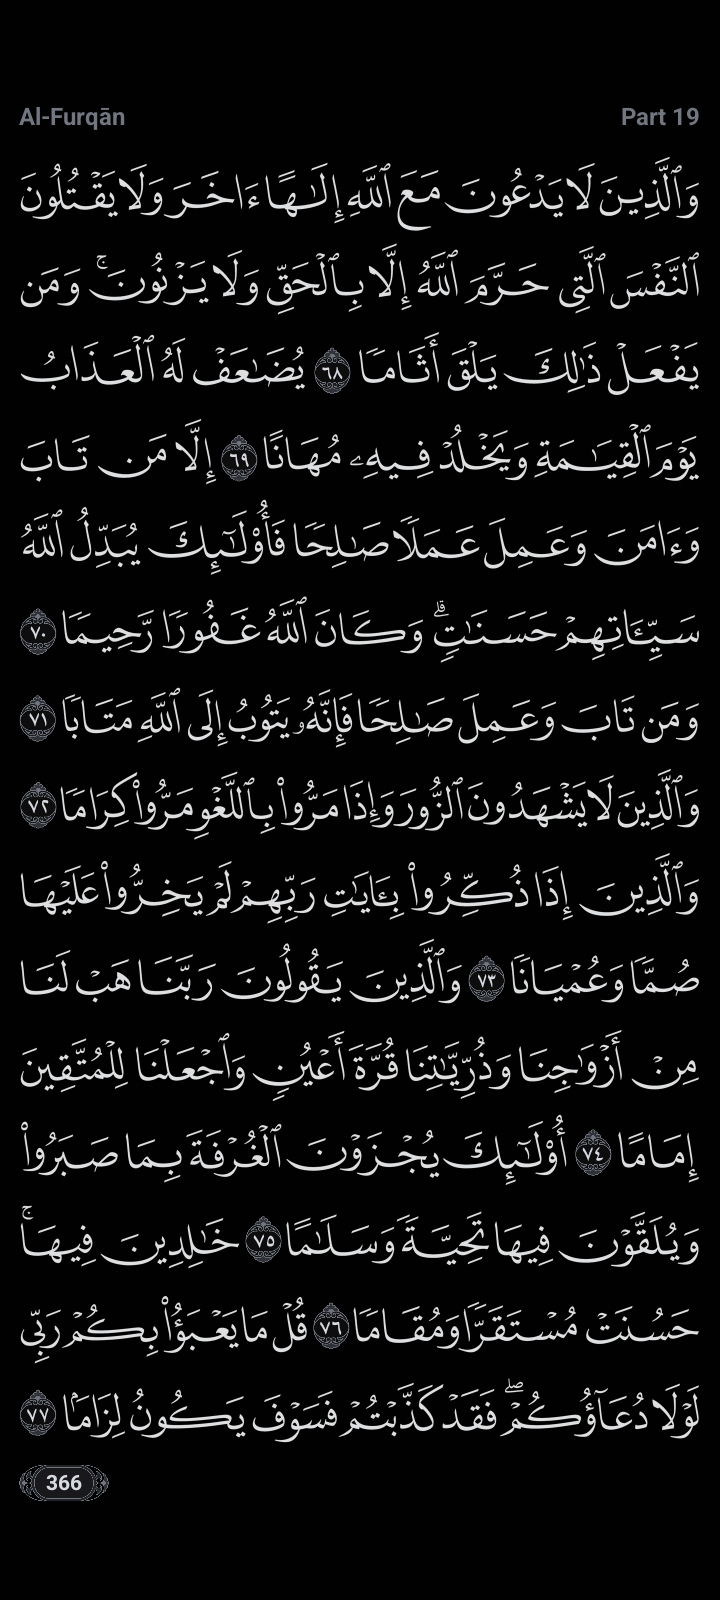 Al-Furqān Part 19
وَٱلَّذِينَ لَا يَدْعُونَ مَعَ ٱللَّهِ إِلَـٰهًا ءَاخَرَ وَلَا يَقْتُلُونَ
ٱلنَّفْسَ ٱلَّتِى حَرَّمَ ٱللَّهُ إِلَّا بِٱلْحَقِّ وَلَا يَزْنُونَ ۚ وَمَن
يَفْعَلْ ذَٰلِكَ يَلْقَ أَثَامًا ٦٨ يُضَـٰعَفْ لَهُ ٱلْعَذَابُ
يَوْمَ ٱلْقِيَـٰمَةِ وَيَخْلُدْ فِيهِۦ مُهَانًا ٦٩ إِلَّا مَن تَابَ
وَءَامَنَ وَعَمِلَ عَمَلًا صَـٰلِحًا فَأُو۟لَـٰٓئِكَ يُبَدِّلُ ٱللَّهُ
سَيِّـَٔاتِهِمْ حَسَنَـٰتٍ ۗ وَكَانَ ٱللَّهُ غَفُورًا رَّحِيمًا ٧٠
وَمَن تَابَ وَعَمِلَ صَـٰلِحًا فَإِنَّهُۥ يَتُوبُ إِلَى ٱللَّهِ مَتَابًا ٧١
وَٱلَّذِينَ لَا يَشْهَدُونَ ٱلزُّورَ وَإِذَا مَرُّوا۟ بِٱللَّغْوِ مَرُّوا۟ كِرَامًا ٧٢
وَٱلَّذِينَ إِذَا ذُكِّرُوا۟ بِـَٔايَـٰتِ رَبِّهِمْ لَمْ يَخِرُّوا۟ عَلَيْهَا
صُمًّا وَعُمْيَانًا ٧٣ وَٱلَّذِينَ يَقُولُونَ رَبَّنَا هَبْ لَنَا
مِنْ أَزْوَٰجِنَا وَذُرِّيَّـٰتِنَا قُرَّةَ أَعْيُنٍ وَٱجْعَلْنَا لِلْمُتَّقِينَ
إِمَامًا ٧٤ أُو۟لَـٰٓئِكَ يُجْزَوْنَ ٱلْغُرْفَةَ بِمَا صَبَرُوا۟
وَيُلَقَّوْنَ فِيهَا تَحِيَّةً وَسَلَـٰمًا ٧٥ خَـٰلِدِينَ فِيهَا ۚ
حَسُنَتْ مُسْتَقَرًّا وَمُقَامًا ٧٦ قُلْ مَا يَعْبَؤُا۟ بِكُمْ رَبِّى
لَوْلَا دُعَآؤُكُمْ ۖ فَقَدْ كَذَّبْتُمْ فَسَوْفَ يَكُونُ لِزَامًۢا ٧٧
366